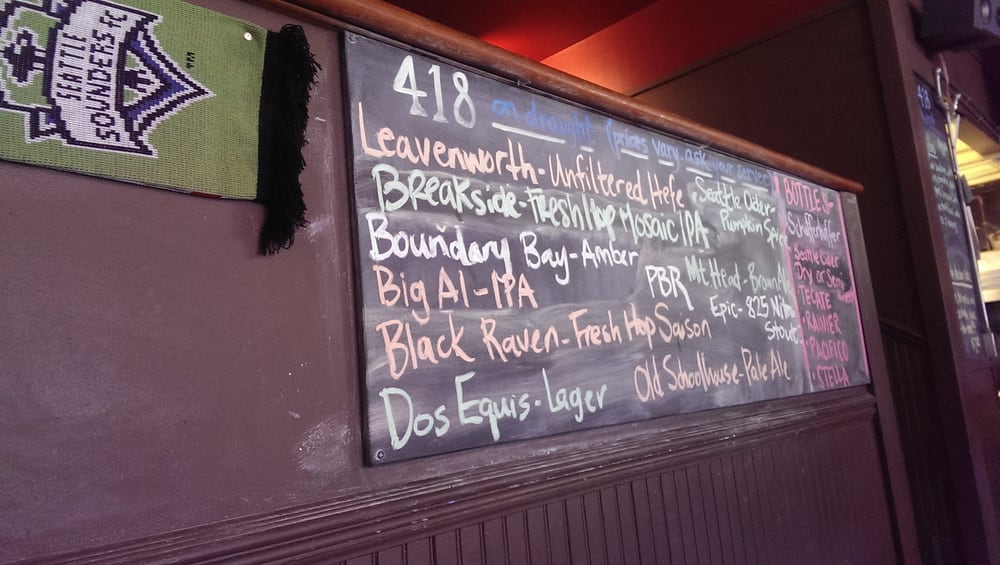 SEATTLE
SOUNDERS FC
418 on draught (prices vary ask your server)
Leavenworth-Unfiltered Hefe
Breakside-Fresh Hop Mosaic IPA
Boundary Bay-Amber
Big Al-IPA
Black Raven-Fresh Hop Saison
Dos Equis-Lager
Seattle Cider-
Pumpkin Spice
PBR
Mt Head-Brown Al
Epic-825 Nitro
Stout
Old Schoolhouse-Pale Ale
BOTTLES-
Schofferhoffer
Seattle Cider
Dry or Semi-
TECATE
-RAINIER
-PACIFICO
-STELLA